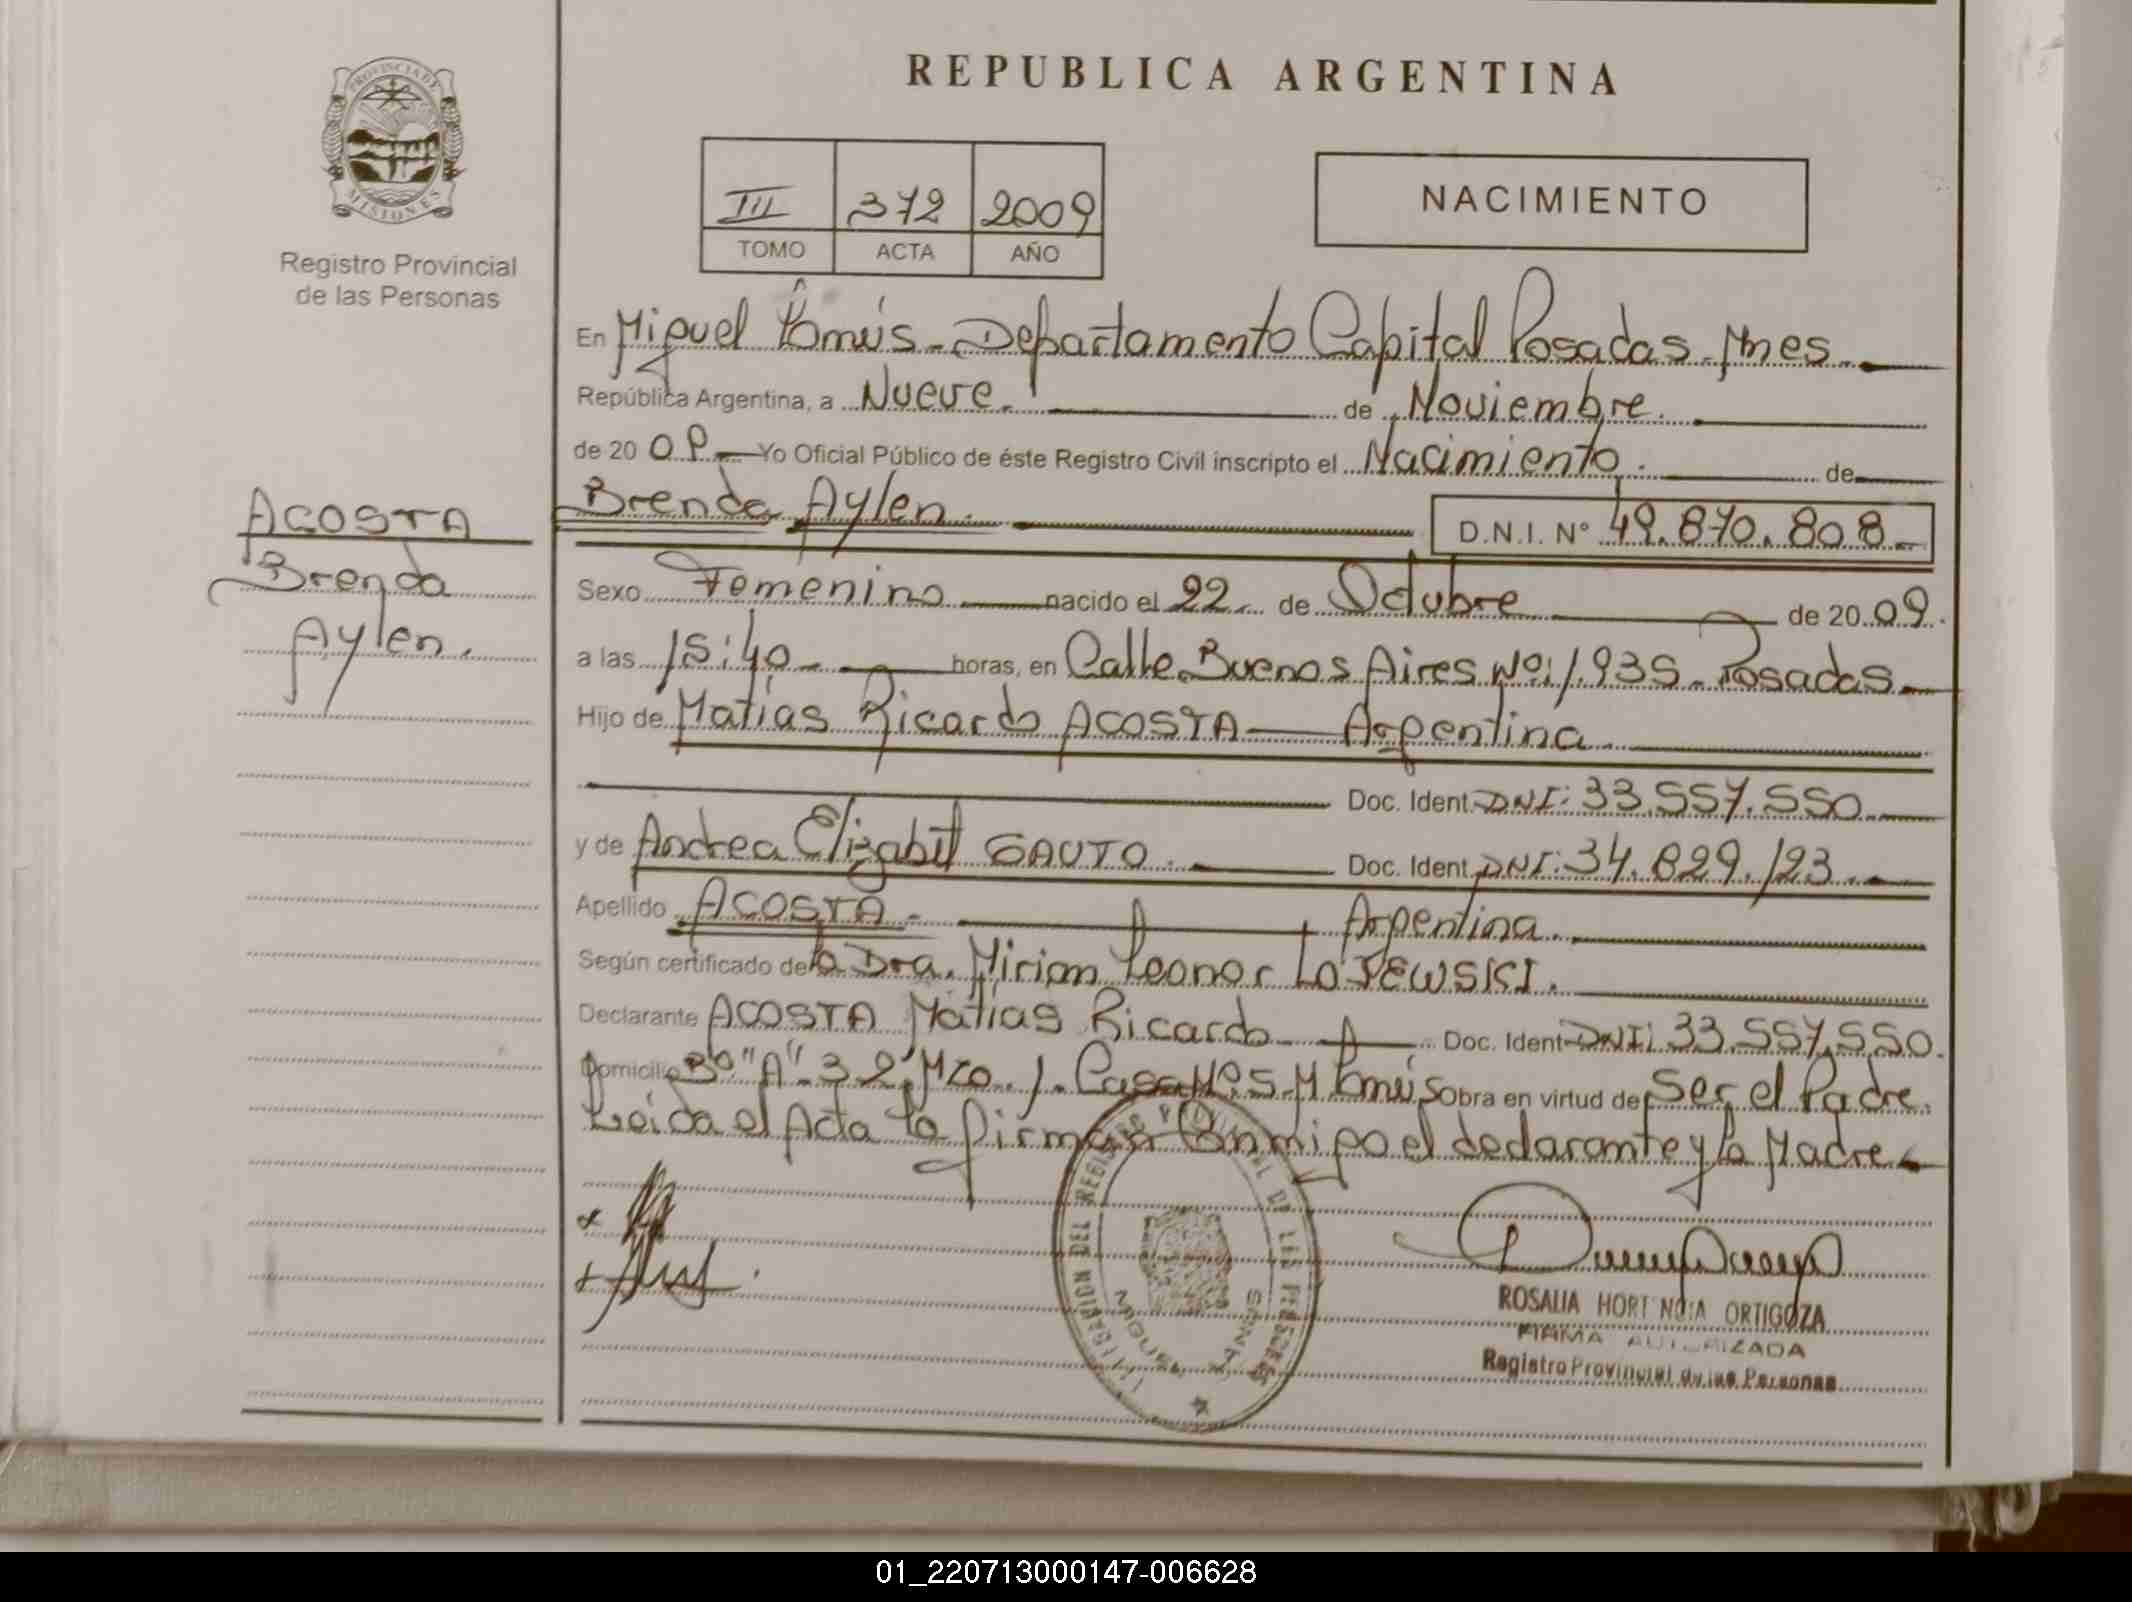 REPUBLICA ARGENTINA
PROVINCIA DE
MISIONES
Registro Provincial
de las Personas
III 372 2009
TOMO ACTA AÑO
NACIMIENTO
En Miguel Lanús - Departamento Capital Posadas - Mnes.
República Argentina, a Nueve. de Noviembre.
de 2009 Yo Oficial Público de éste Registro Civil inscripto el Nacimiento. de
Brenda Aylen. D.N.I. Nº 49.870.808
ACOSTA
Brenda
Aylen.
Sexo Femenino nacido el 22 de Octubre de 2009.
a las 15:40 horas, en Calle Buenos Aires Nº: 1.935 - Posadas
Hijo de Matías Ricardo ACOSTA — Argentina.
Doc. Ident. DNI: 33.557.550
y de Andrea Elizabit GAUTO. Doc. Ident. DNI: 34.829.123.
Apellido ACOSTA - Argentina.
Según certificado de la Dra. Mirian Leonor LOJEWSKI.
Declarante ACOSTA Matías Ricardo Doc. Ident DNI: 33.557.550.
Domicilio Bº "A" 3 2 Mzo. 1. Casa Nº 5 - M Lanús Obra en virtud de Ser el Padre.
Leida el Acta la firman Conmigo el declarante y la Madre
DEL REGISTRO PROVINCIAL DE LAS PERSONAS
ROSALIA HORTENCIA ORTIGOZA
FIRMA AUTORIZADA
Registro Provincial de las Personas
01_220713000147-006628